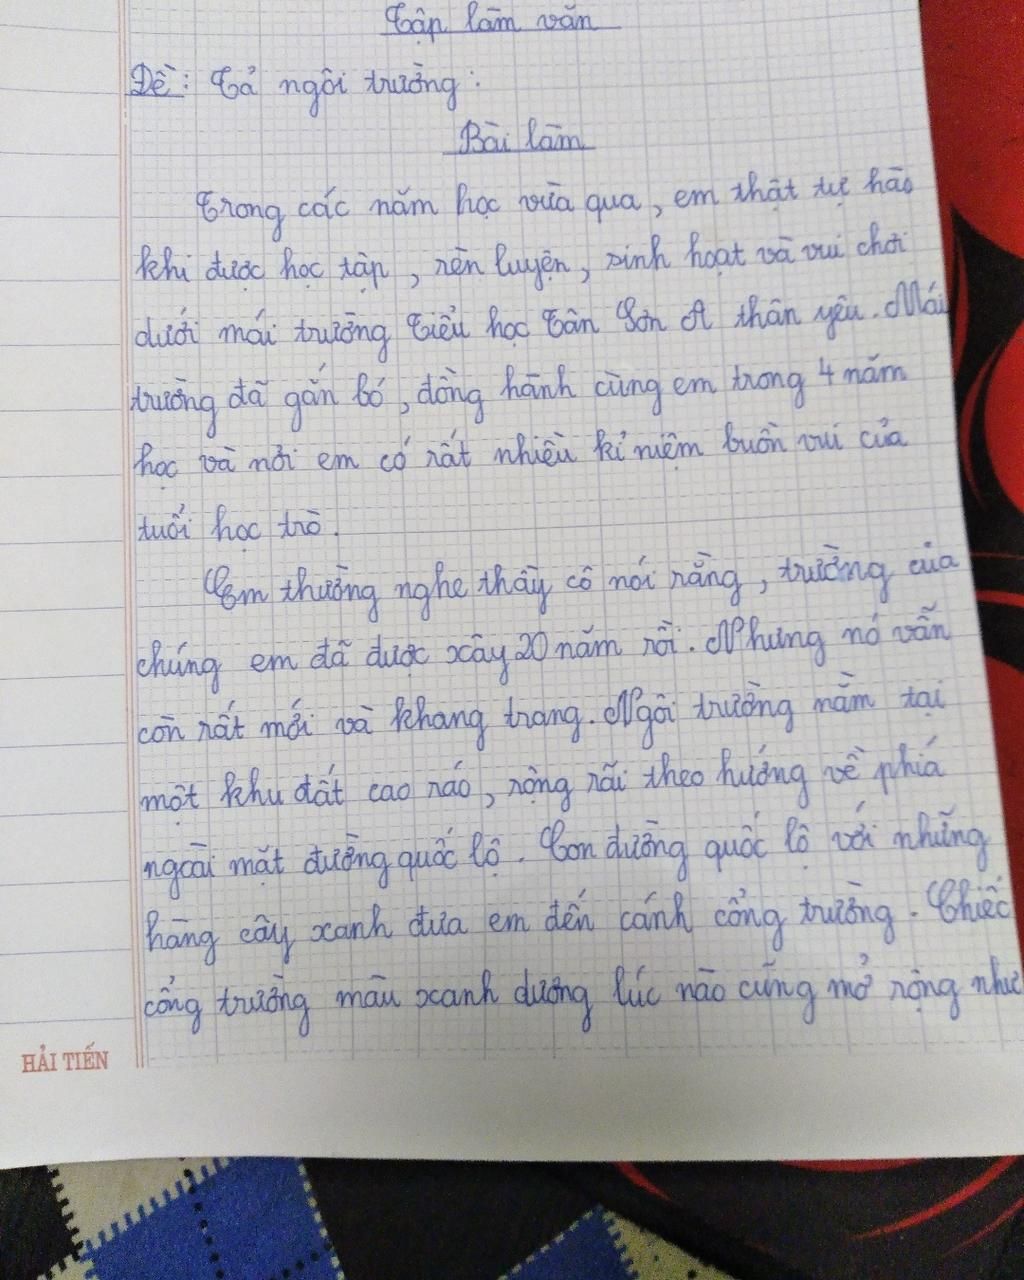 Tập làm văn
Đề: Tả ngôi trường.
Bài làm
Trong các năm học vừa qua, em thật tự hào
khi được học tập, rèn luyện, sinh hoạt và vui chơi
dưới mái trường Tiểu học Tân Sơn A thân yêu. Mái
trường đã gắn bó, đồng hành cùng em trong 4 năm
học và nơi em có rất nhiều kỉ niệm buồn vui của
tuổi học trò.
Em thường nghe thầy cô nói rằng, trường của
chúng em đã được xây 20 năm rồi. Nhưng nó vẫn
còn rất mới và khang trang. Ngôi trường nằm tại
một khu đất cao ráo, rộng rãi theo hướng về phía
ngoài mặt đường quốc lộ. Con đường quốc lộ với những
hàng cây xanh đưa em đến cánh cổng trường. Chiếc
cổng trường màu xanh dương lúc nào cũng mở rộng như
HẢI TIẾN